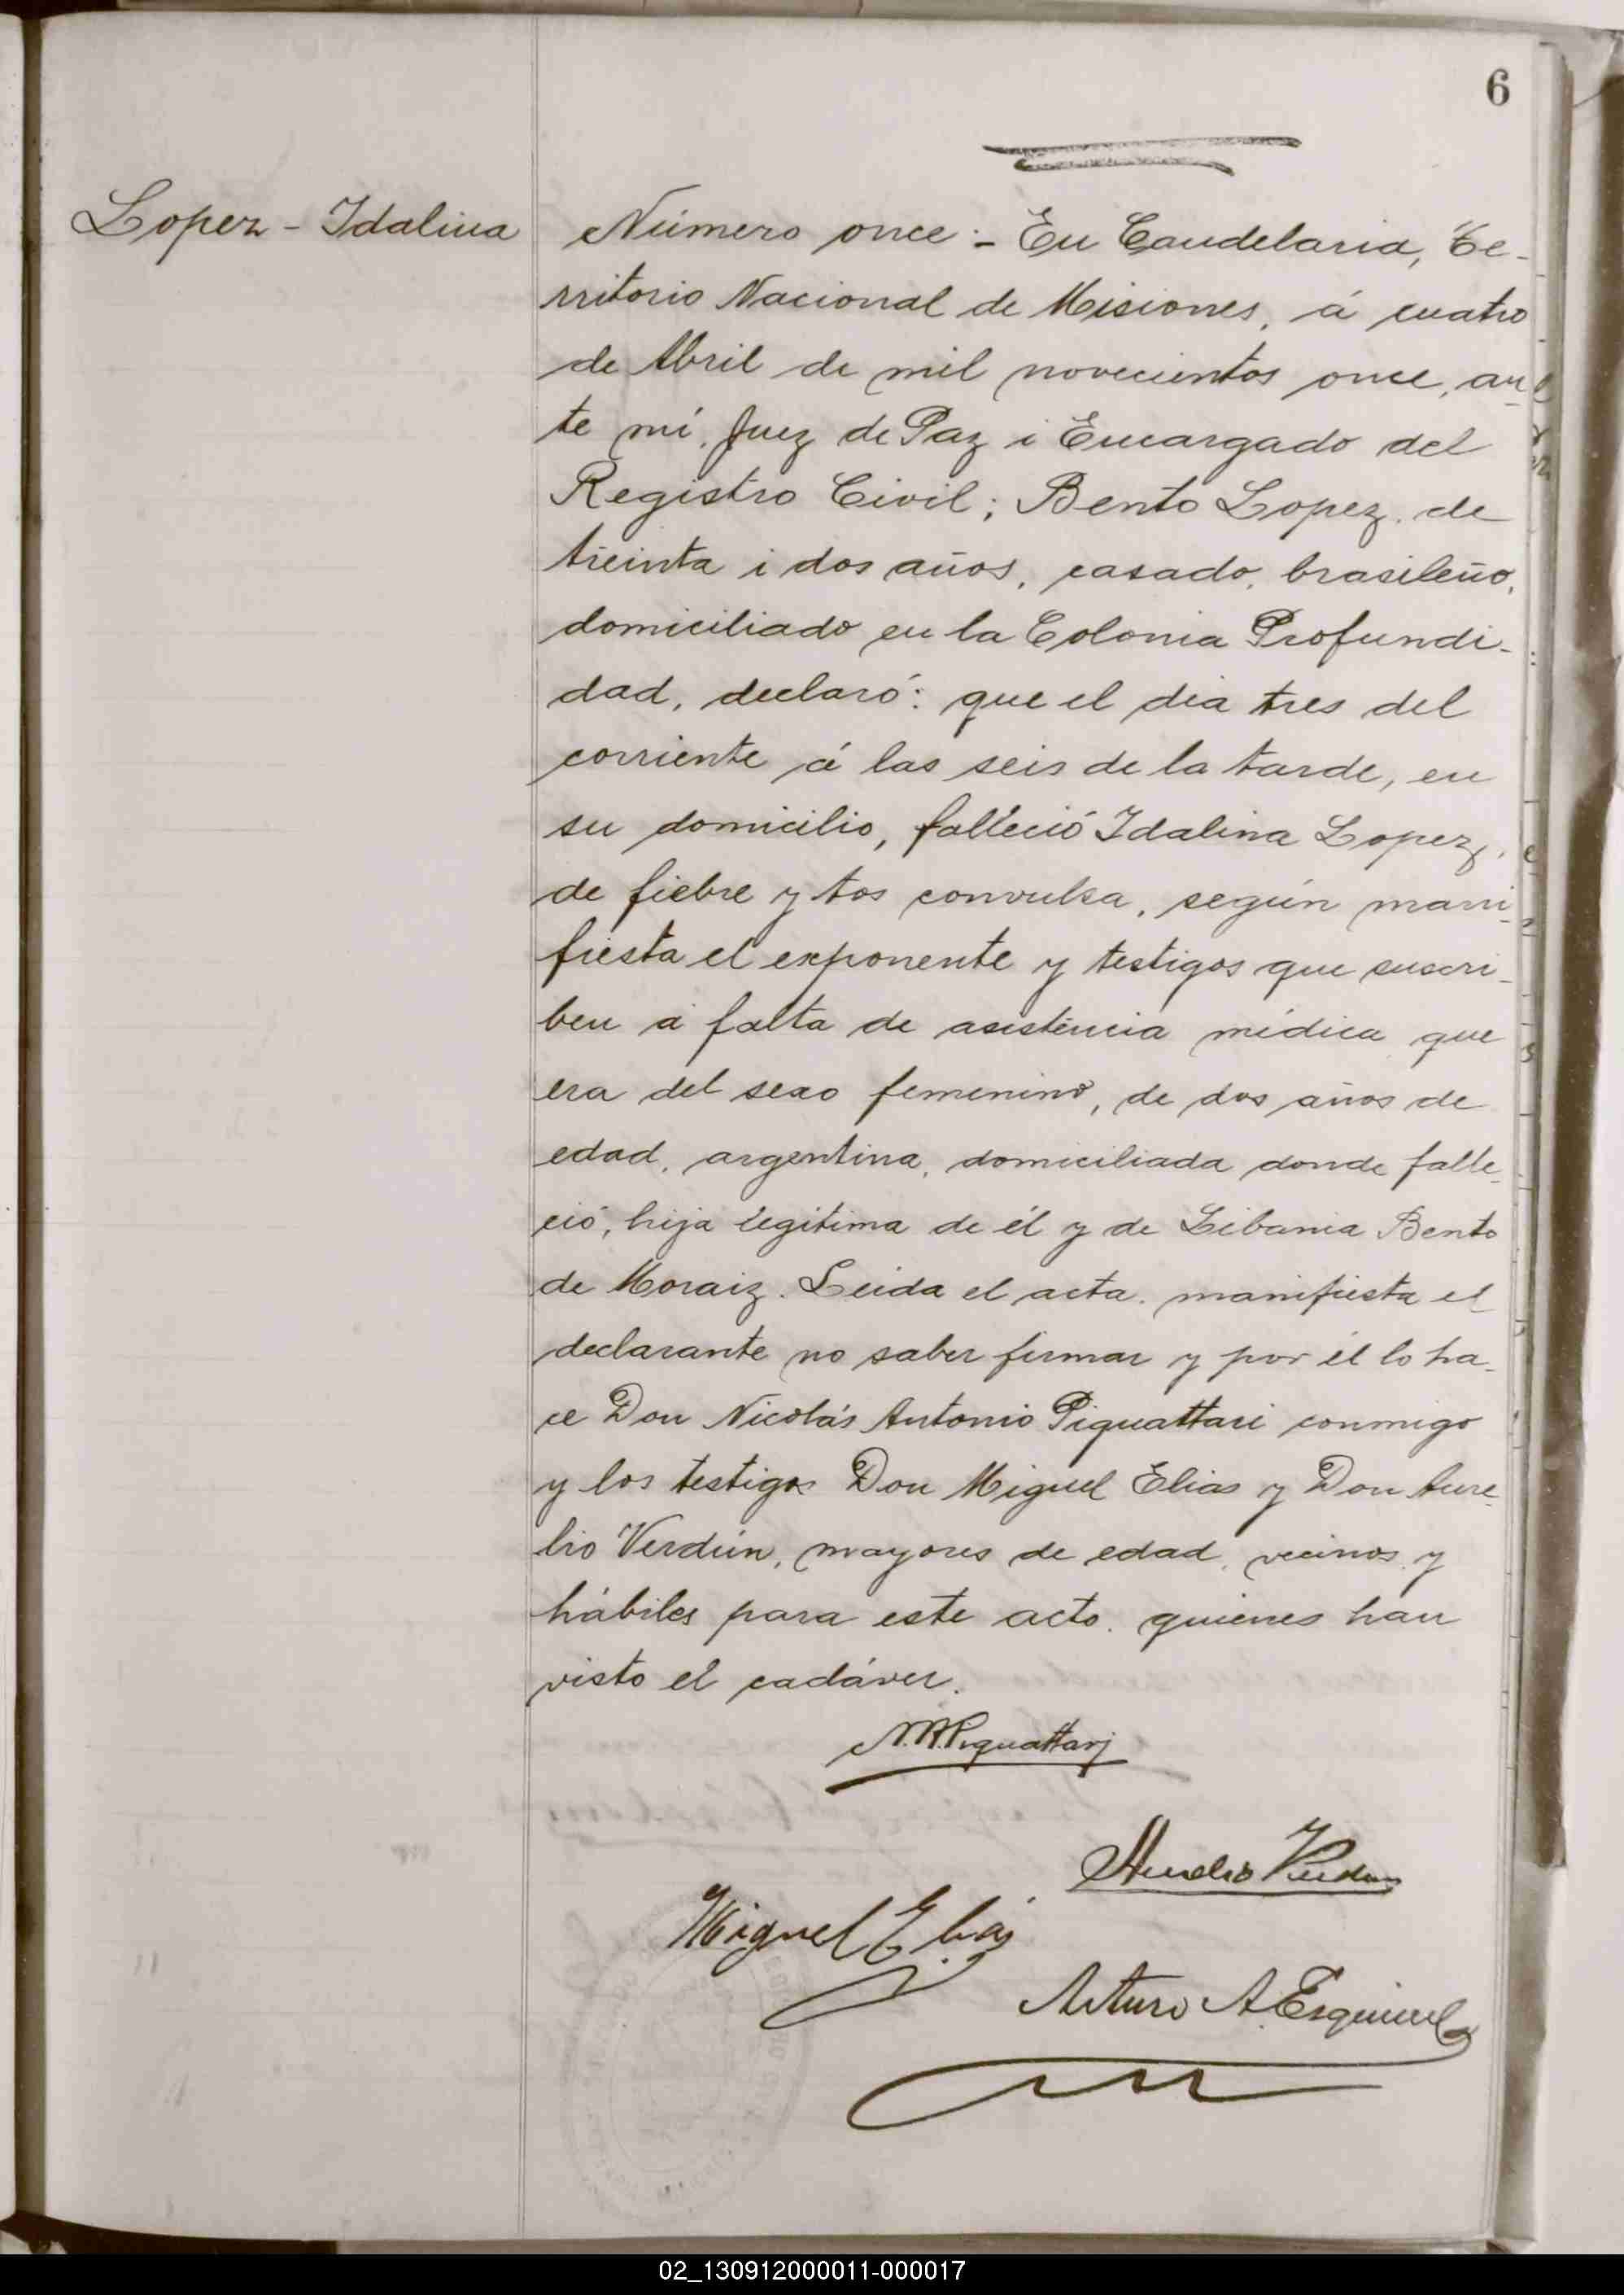 6
Lopez - Idalina
Número once :- En Candelaria, Te-
rritorio Nacional de Misiones, á cuatro
de Abril de mil novecientos once, an-
te mí, Juez de Paz i Encargado del
Registro Civil; Bento Lopez, de
treinta i dos años, casado, brasileño,
domiciliado en la Colonia Profundi-
dad, declaró: que el dia tres del
corriente á las seis de la tarde, en
su domicilio, falleció Idalina Lopez,
de fiebre y tos convulsa, según mani-
fiesta el exponente y testigos que suscri-
ben á falta de asistencia médica que
era del sexo femenino, de dos años de
edad, argentina, domiciliada donde falle-
ció, hija legítima de él y de Libania Bento
de Moraiz. Leida el acta, manifiesta el
declarante no saber firmar y por él lo ha-
ce Don Nicolás Antonio Piquattari conmigo
y los testigos Don Miguel Elias y Don Aure-
lio Verdún, mayores de edad, vecinos y
hábiles para este acto, quienes han
visto el cadáver.
N. A. Piquattari
Aurelio Verdun
Miguel Elias
Arturo A. Esquivel
02_130912000011-000017